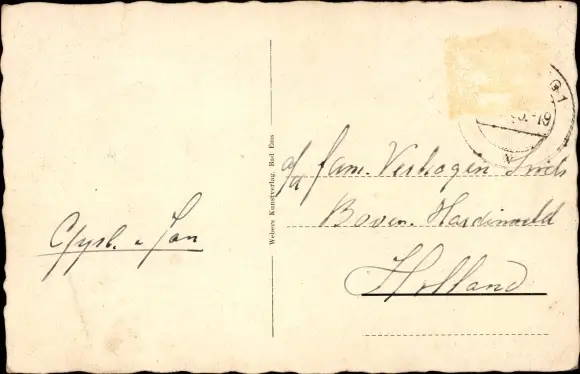 Gijsb. e Jan
Webers Kunstverlag, Bad Ems
a/d fam. Verhagen Smits
Boven. Hardinxveld
Holland
G 1
-19